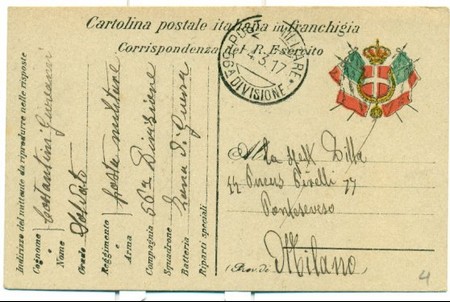 Cartolina postale italiana in franchigia
Corrispondenza del R. Esercito
POSTA MILITARE
4.3.17
56A DIVISIONE
Indirizzo del mittente da riprodurre nelle risposte
Cognome Costantini Giovanni
e
Nome
Grado Soldato
Reggimento posta militare
o
Arma
Compagnia 56a Divisione
Squadrone Zona di Guerra
Batteria
Riparti speciali
Alla Spett Ditta
Pirelli
Milano
(Prov. di
4